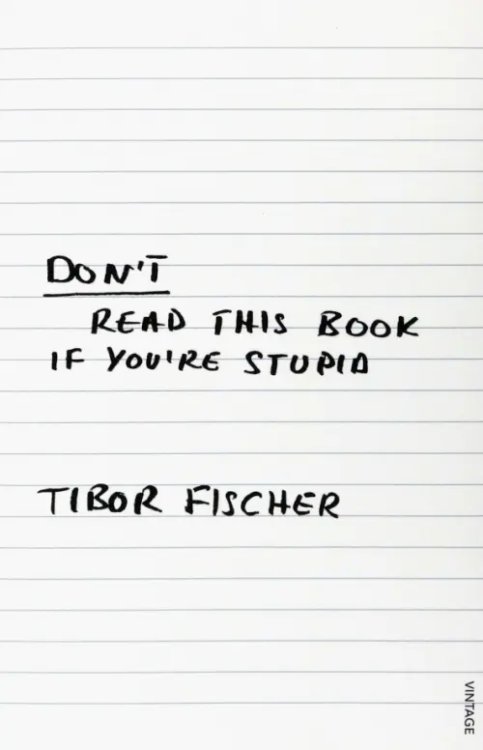 DON'T
READ THIS BOOK
IF YOU'RE STUPID
TIBOR FISCHER
VINTAGE